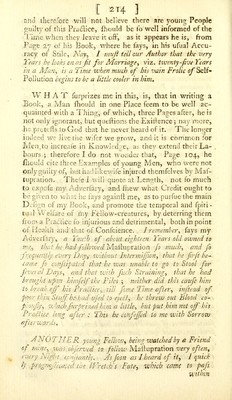 [ 214 ]
and therefore will not believe there are young People
guilty of this Practice, should be so well informed of the
Time when they leave it off, as it appears he is, from
Page 27 of his Book, where he says, in his usual Accu-
racy of Stile, Nay, I must tell our Author that the very
Years he looks on as fit for Marriage, viz. twenty-five Years
in a Man, is a Time when much of his vain Frolic of Self-
Pollution begins to be a little cooler in him.
WHAT surprizes me in this, is, that in writing a
Book, a Man should in one Place seem to be well ac-
quainted with a Thing, of which, three Pages after, he is
not only ignorant, but questions the Existence; nay more,
he protests to God that he never heard of it. The longer
indeed we live the wiser we grow, and it is common for
Men to increase in Knowledge, as they extend their La-
bours; therefore I do not wonder that, Page 104, he
should cite three Examples of young Men, who were not
only guilty of, but had likewise injured themselves by Mas-
tupration. These I will quote at Length, not so much
to expose my Adversary, and shew what Credit ought to
be given to what he says against me, as to pursue the main
Design of my Book, and promote the temporal and spiri-
tual Welfare of my Fellow-creatures, by deterring them
from a Practice so injurious and detrimental, both in point
of Health and that of Conscience. I remember, says my
Adversary, a Youth of about eighteen Years old owned to
me, that he had followed Mastupration so much, and so
frequently every Day, without Intermission, that he first be-
came so constipated that he was unable to go to Stool for
several Days, and that with such Straining, that he had
brought upon himself the Piles; neither did this cause him
to break off his Practice, till some Time after, instead of
pure thin Stuff he had used to eject, he threw out Blood co-
piously, which surprized him a little, but put him not off his
Practice long after: This he confessed to me with Sorrow
afterwards.
ANOTHER young Fellow, being watched by a Friend
of mine, was observed to follow Mastupration very often,
every Night constantly. As soon as I heard of it, I quick-
ly prognosticated the Wretch's Fate, which came to pass
within